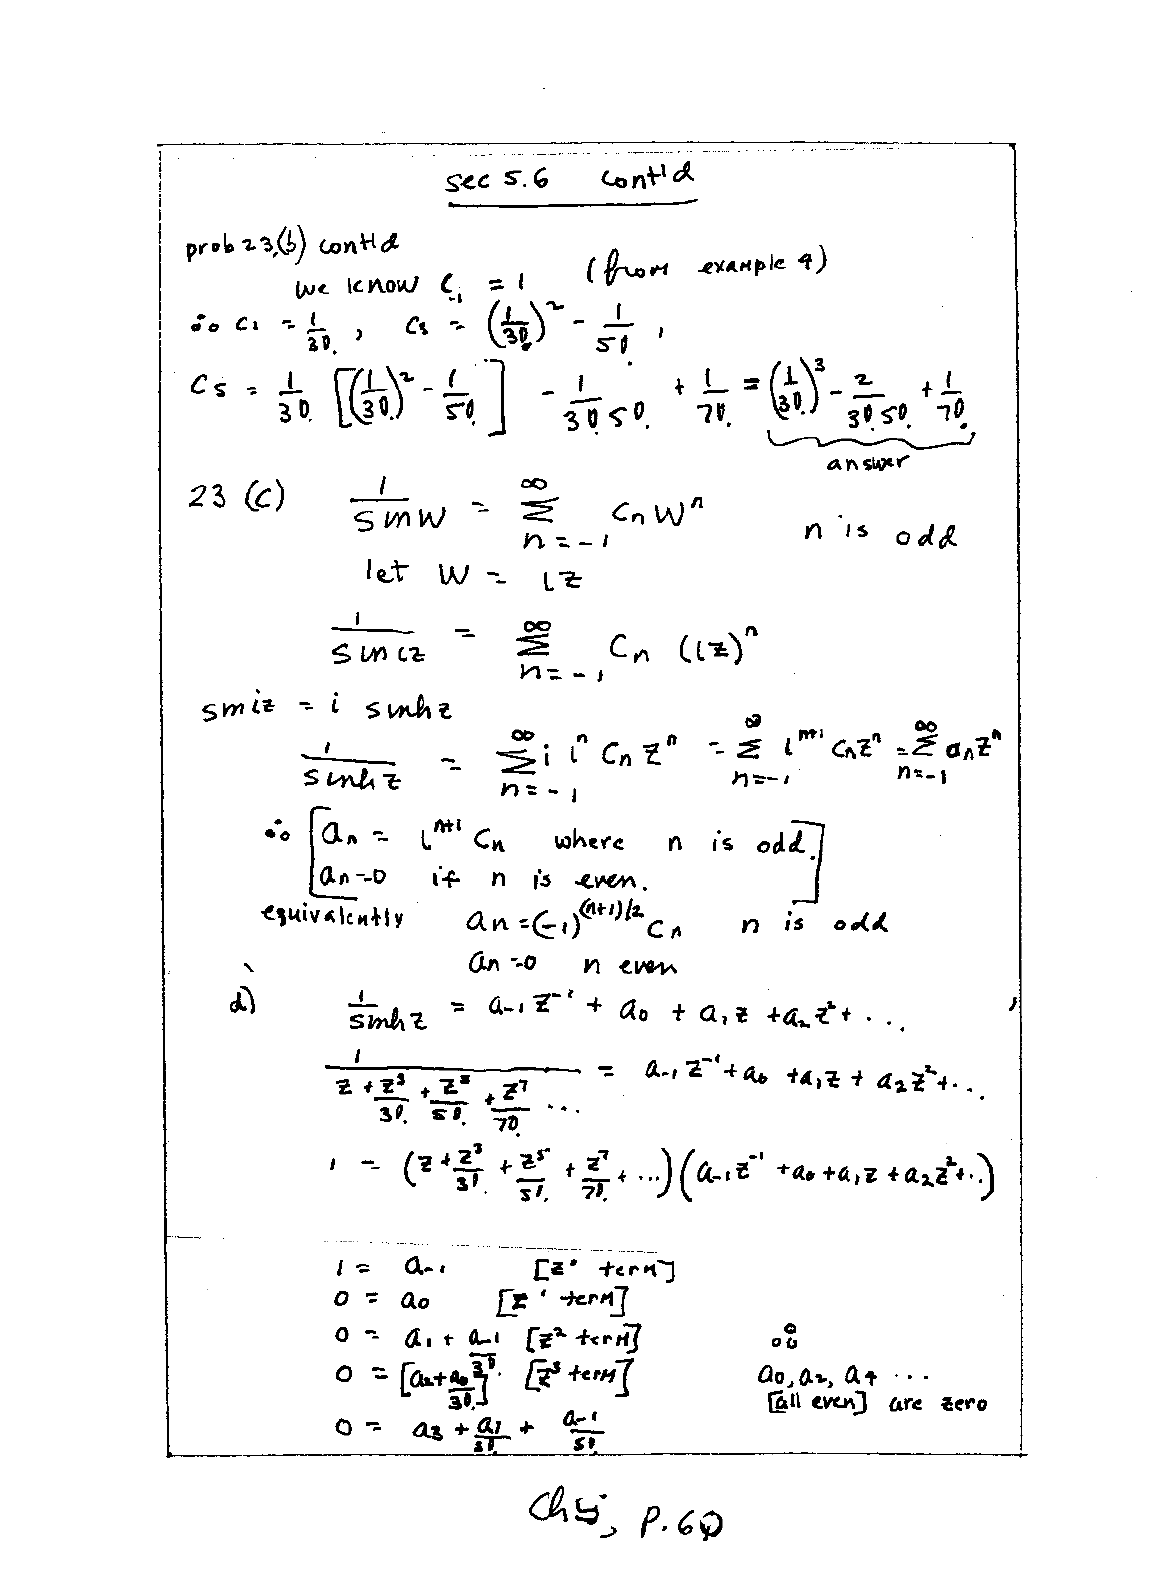 sec 5.6 cont'd
prob 23,(b) cont'd
we know c₋₁ = 1 (from example 4)
∴ c₁ = 1/3!, c₃ = (1/3!)² - 1/5!,
c₅ = 1/3! [(1/3!)² - 1/5!] - 1/(3! 5!) + 1/7! = (1/3!)³ - 2/(3! 5!) + 1/7!
answer
23 (c) 1/sin w = ∑_{n=-1}^{∞} cₙ wⁿ n is odd
let w = iz
1/sin iz = ∑_{n=-1}^{∞} cₙ (iz)ⁿ
sin iz = i sinh z
1/sinh z = ∑_{n=-1}^{∞} i iⁿ cₙ zⁿ = ∑_{n=-1}^{∞} iⁿ⁺¹ cₙ zⁿ = ∑_{n=-1}^{∞} aₙ zⁿ
∴ [aₙ = iⁿ⁺¹ cₙ where n is odd.
aₙ = 0 if n is even.]
equivalently aₙ = (-1)^{(n+1)/2} cₙ n is odd
aₙ = 0 n even
d) 1/sinh z = a₋₁ z⁻¹ + a₀ + a₁ z + a₂ z² + ...
1/(z + z³/3! + z⁵/5! + z⁷/7! ...) = a₋₁ z⁻¹ + a₀ + a₁ z + a₂ z² + ...
1 = (z + z³/3! + z⁵/5! + z⁷/7! + ...)(a₋₁ z⁻¹ + a₀ + a₁ z + a₂ z² + ..)
1 = a₋₁ [z⁰ term]
0 = a₀ [z¹ term]
0 = a₁ + a₋₁/3! [z² term] ∴
0 = [a₂ + a₀/3!] [z³ term] a₀, a₂, a₄ ...
[all even] are zero
0 = a₃ + a₁/3! + a₋₁/5!
Ch 5, P. 60